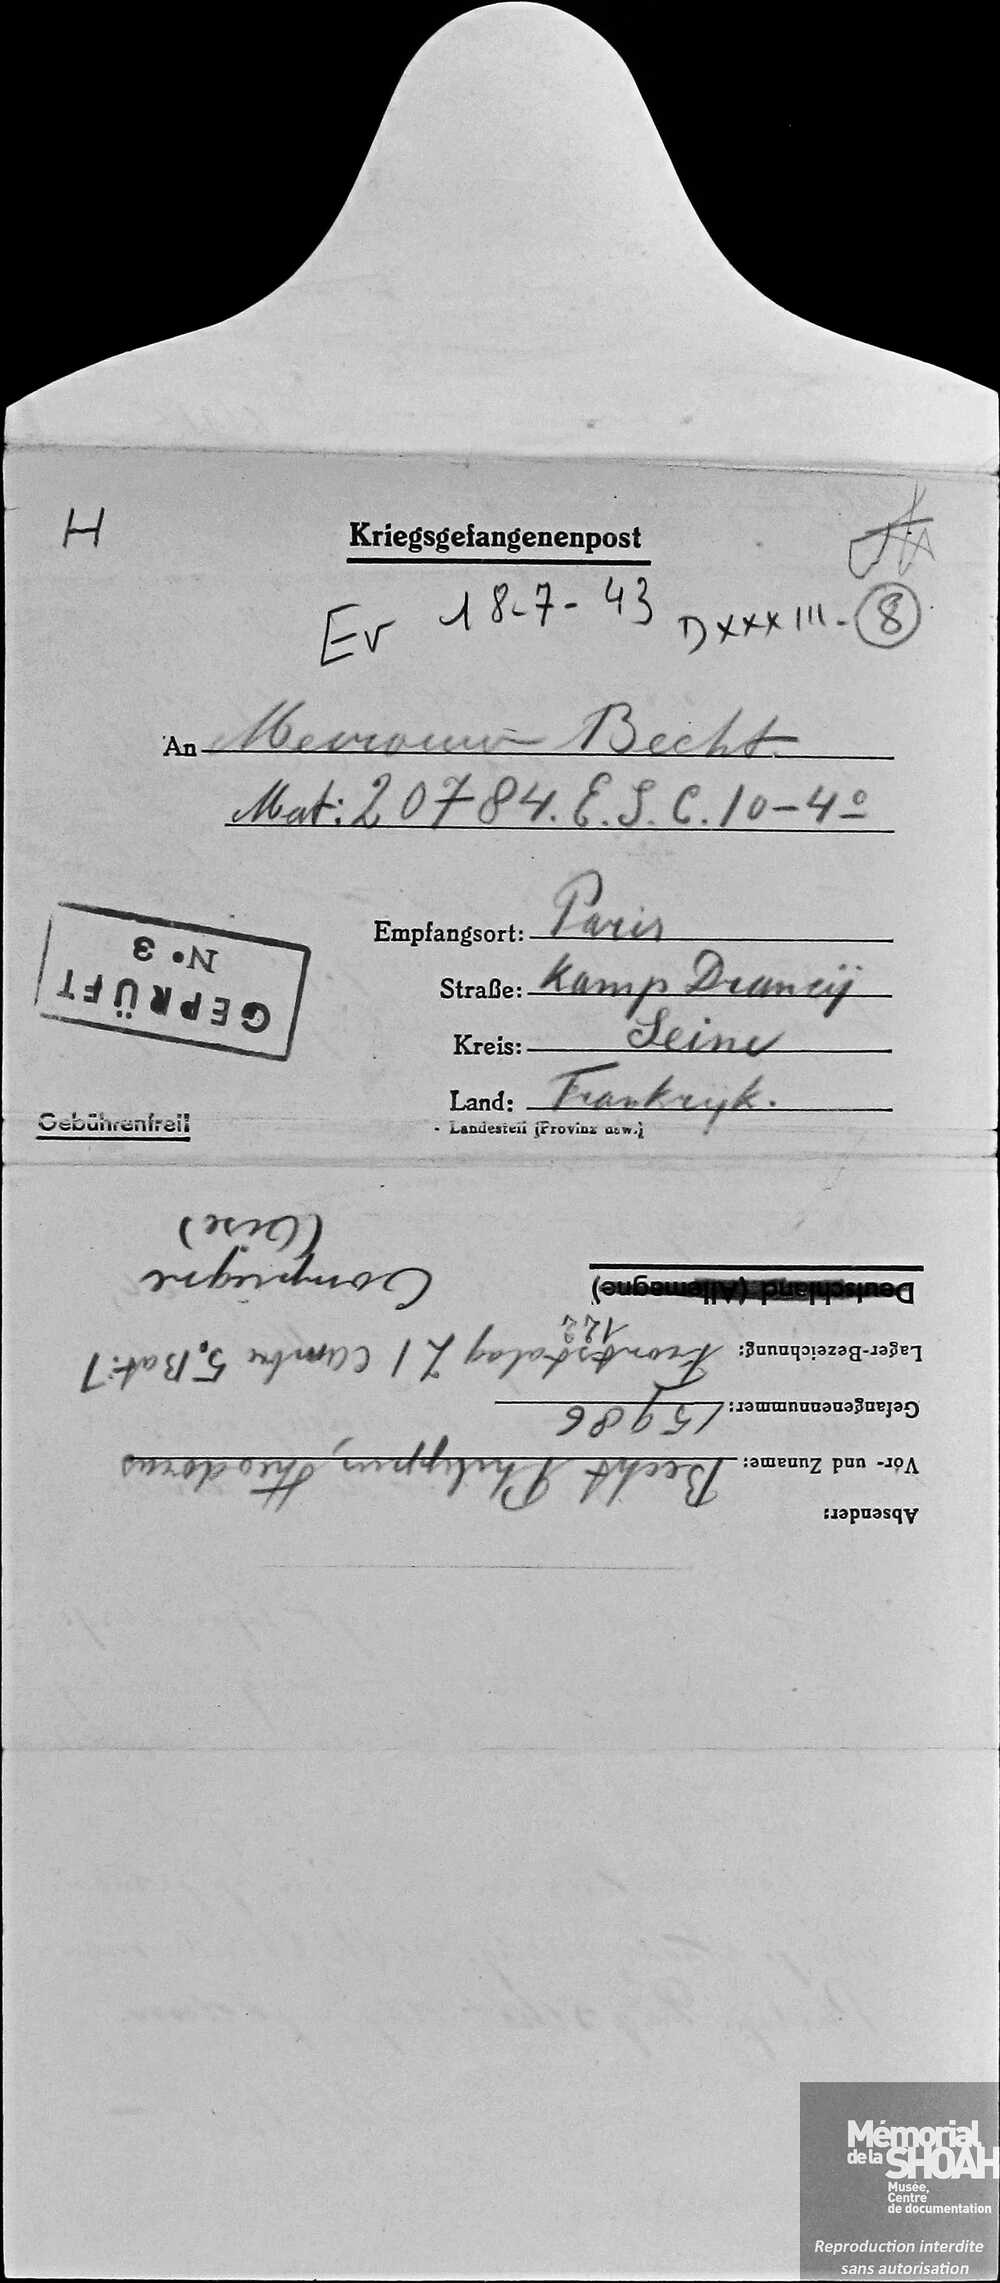 H
Kriegsgefangenenpost
Ev 18-7-43 DXXXIII-8
An Mevrouw Becht.
Mat: 20784. E.S.C. 10-4º
Empfangsort: Paris
Straße: Kamp Drancÿ
Kreis: Seine
Land: Frankryk.
Landesteil (Provinz usw.)
GEPRÜFT
Nº 3
Gebührenfrei!
Absender:
Vor- und Zuname: Becht Philippus, Theodorus
Gefangenennummer: 15986
Lager-Bezeichnung: Frontstalag 122 Cambre 5, Bat: 1
Deutschland (Allemagne)
Compiegne
(Oise)
Mémorial
de la SHOAH
Musée,
Centre
de documentation
Reproduction interdite
sans autorisation